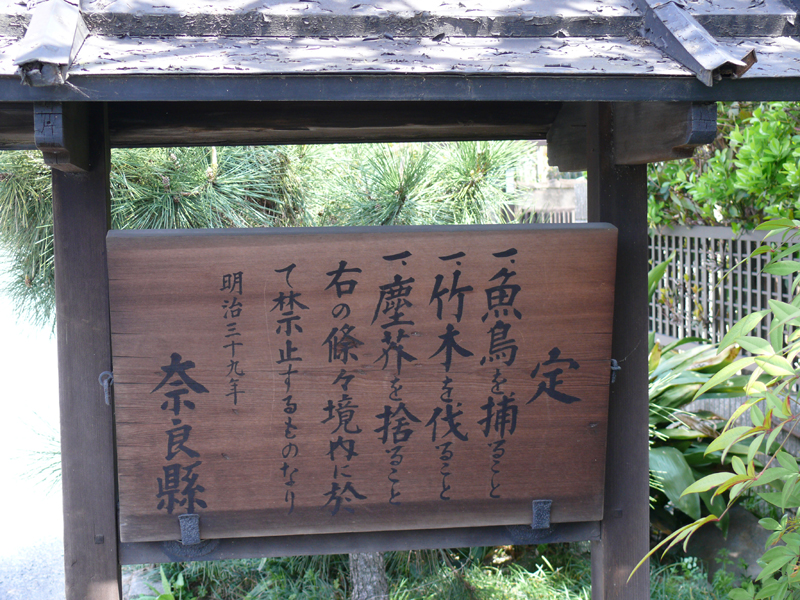 定
一、魚鳥を捕ること
一、竹木を伐ること
一、塵芥を捨ること
右の條々境内に於
て禁止するものなり
明治三十九年
奈良縣